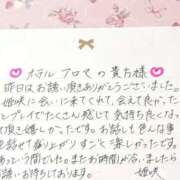 ホテル アロマの貴方様
昨日はお誘い頂きありがとうございました。
姫咲に会いに来てくれて、会えて良かった
プレイでたくさん感じて気持ち良くなっ
て頂き嬉しかったです。お話しも色んな事
を話せて盛り上がりすごく楽しかったです。
あっという間でした。またお時間が合いましたら
お誘いお待ちしております。
姫咲